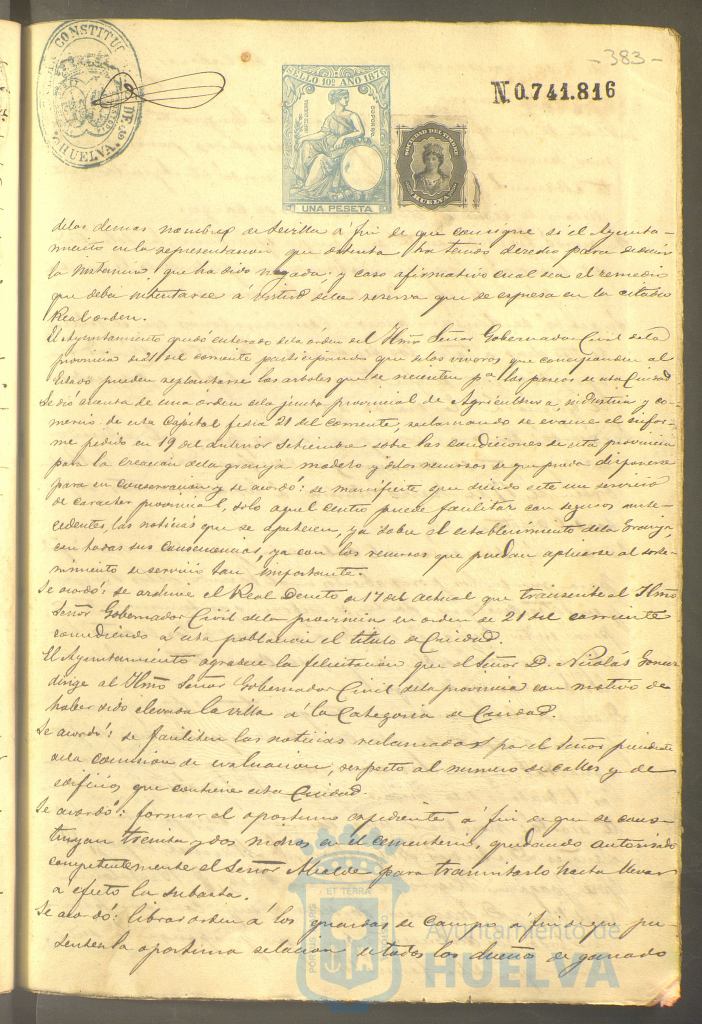 -383-
CONSTITUC
DE
HUELVA.
SELLO 10º AÑO 187
UNA PESETA
SOCIEDAD DEL TIMBRE
HUELVA
N0.741.816
delas demas nombrep de Sevilla á fin de que consigne si el Ayunta-
miento en la representacion que ostenta ha tenido derecho para
la que ha sido negada y caso afirmativo cual sea el remedio
que deba intentarse á virtud dela reserva que se espresa en la citada
Real orden.
El Ayuntamiento quedó enterado dela órden del Ylmo Señor Gobernador Civil dela
provincia del corriente participando que delos viveros que al
Estado pueden los arboles que se necesiten pª los paseos de esta Ciudad
Se dió cuenta de una orden dela junta provincial de Agricultura, industria y co-
mercio de esta Capital fecha 21 del corriente, reclamando se evacue el infor-
me pedido en 19 del anterior Setiembre sobre las condiciones de esta provincia
para la creacion dela granja modelo y delos recursos de que pueda disponerse
para su conservacion y se acordó: se manifieste que siendo este un servicio
de caracter provincial, solo aquel centro puede facilitar con seguros ante-
cedentes, las noticias que se apetecen, ya sobre el establecimiento dela Granja,
con todas sus consecuencias, ya con los recursos que puedan aplicarse al soste-
nimiento de servicio tan importante.
Se acordó: se archive el Real Decreto de 17 del actual que transcribe el Ylmo
Señor Gobernador Civil dela provincia en orden de 21 del corriente
concediendo á esta poblacion el titulo de Ciudad.
El Ayuntamiento agradece la felicitacion que el Señor D. Nicolás Gomez
dirige al Ylmo Señor Gobernador Civil dela provincia con motivo de
haber sido elevada la villa á la Categoria de Ciudad.
Se acordó: se faciliten las noticias reclamadas por el Señor presidente
dela comision de evaluacion, respecto al numero de calles y de
edificios que contiene esta Ciudad.
Se acordó: formar el oportuno expediente á fin de que se cons-
truyan treinta y dos nichos en el cementerio, quedando autorizado
competentemente el Señor Alcalde para tramitarlo hasta llevar
a efecto la subasta.
Se acordó: librar orden á los guardas de campo á fin de que pre-
senten la oportuna relacion de todos los dueños de ganado
ET TERRÆ
Ayuntamiento de
HUELVA